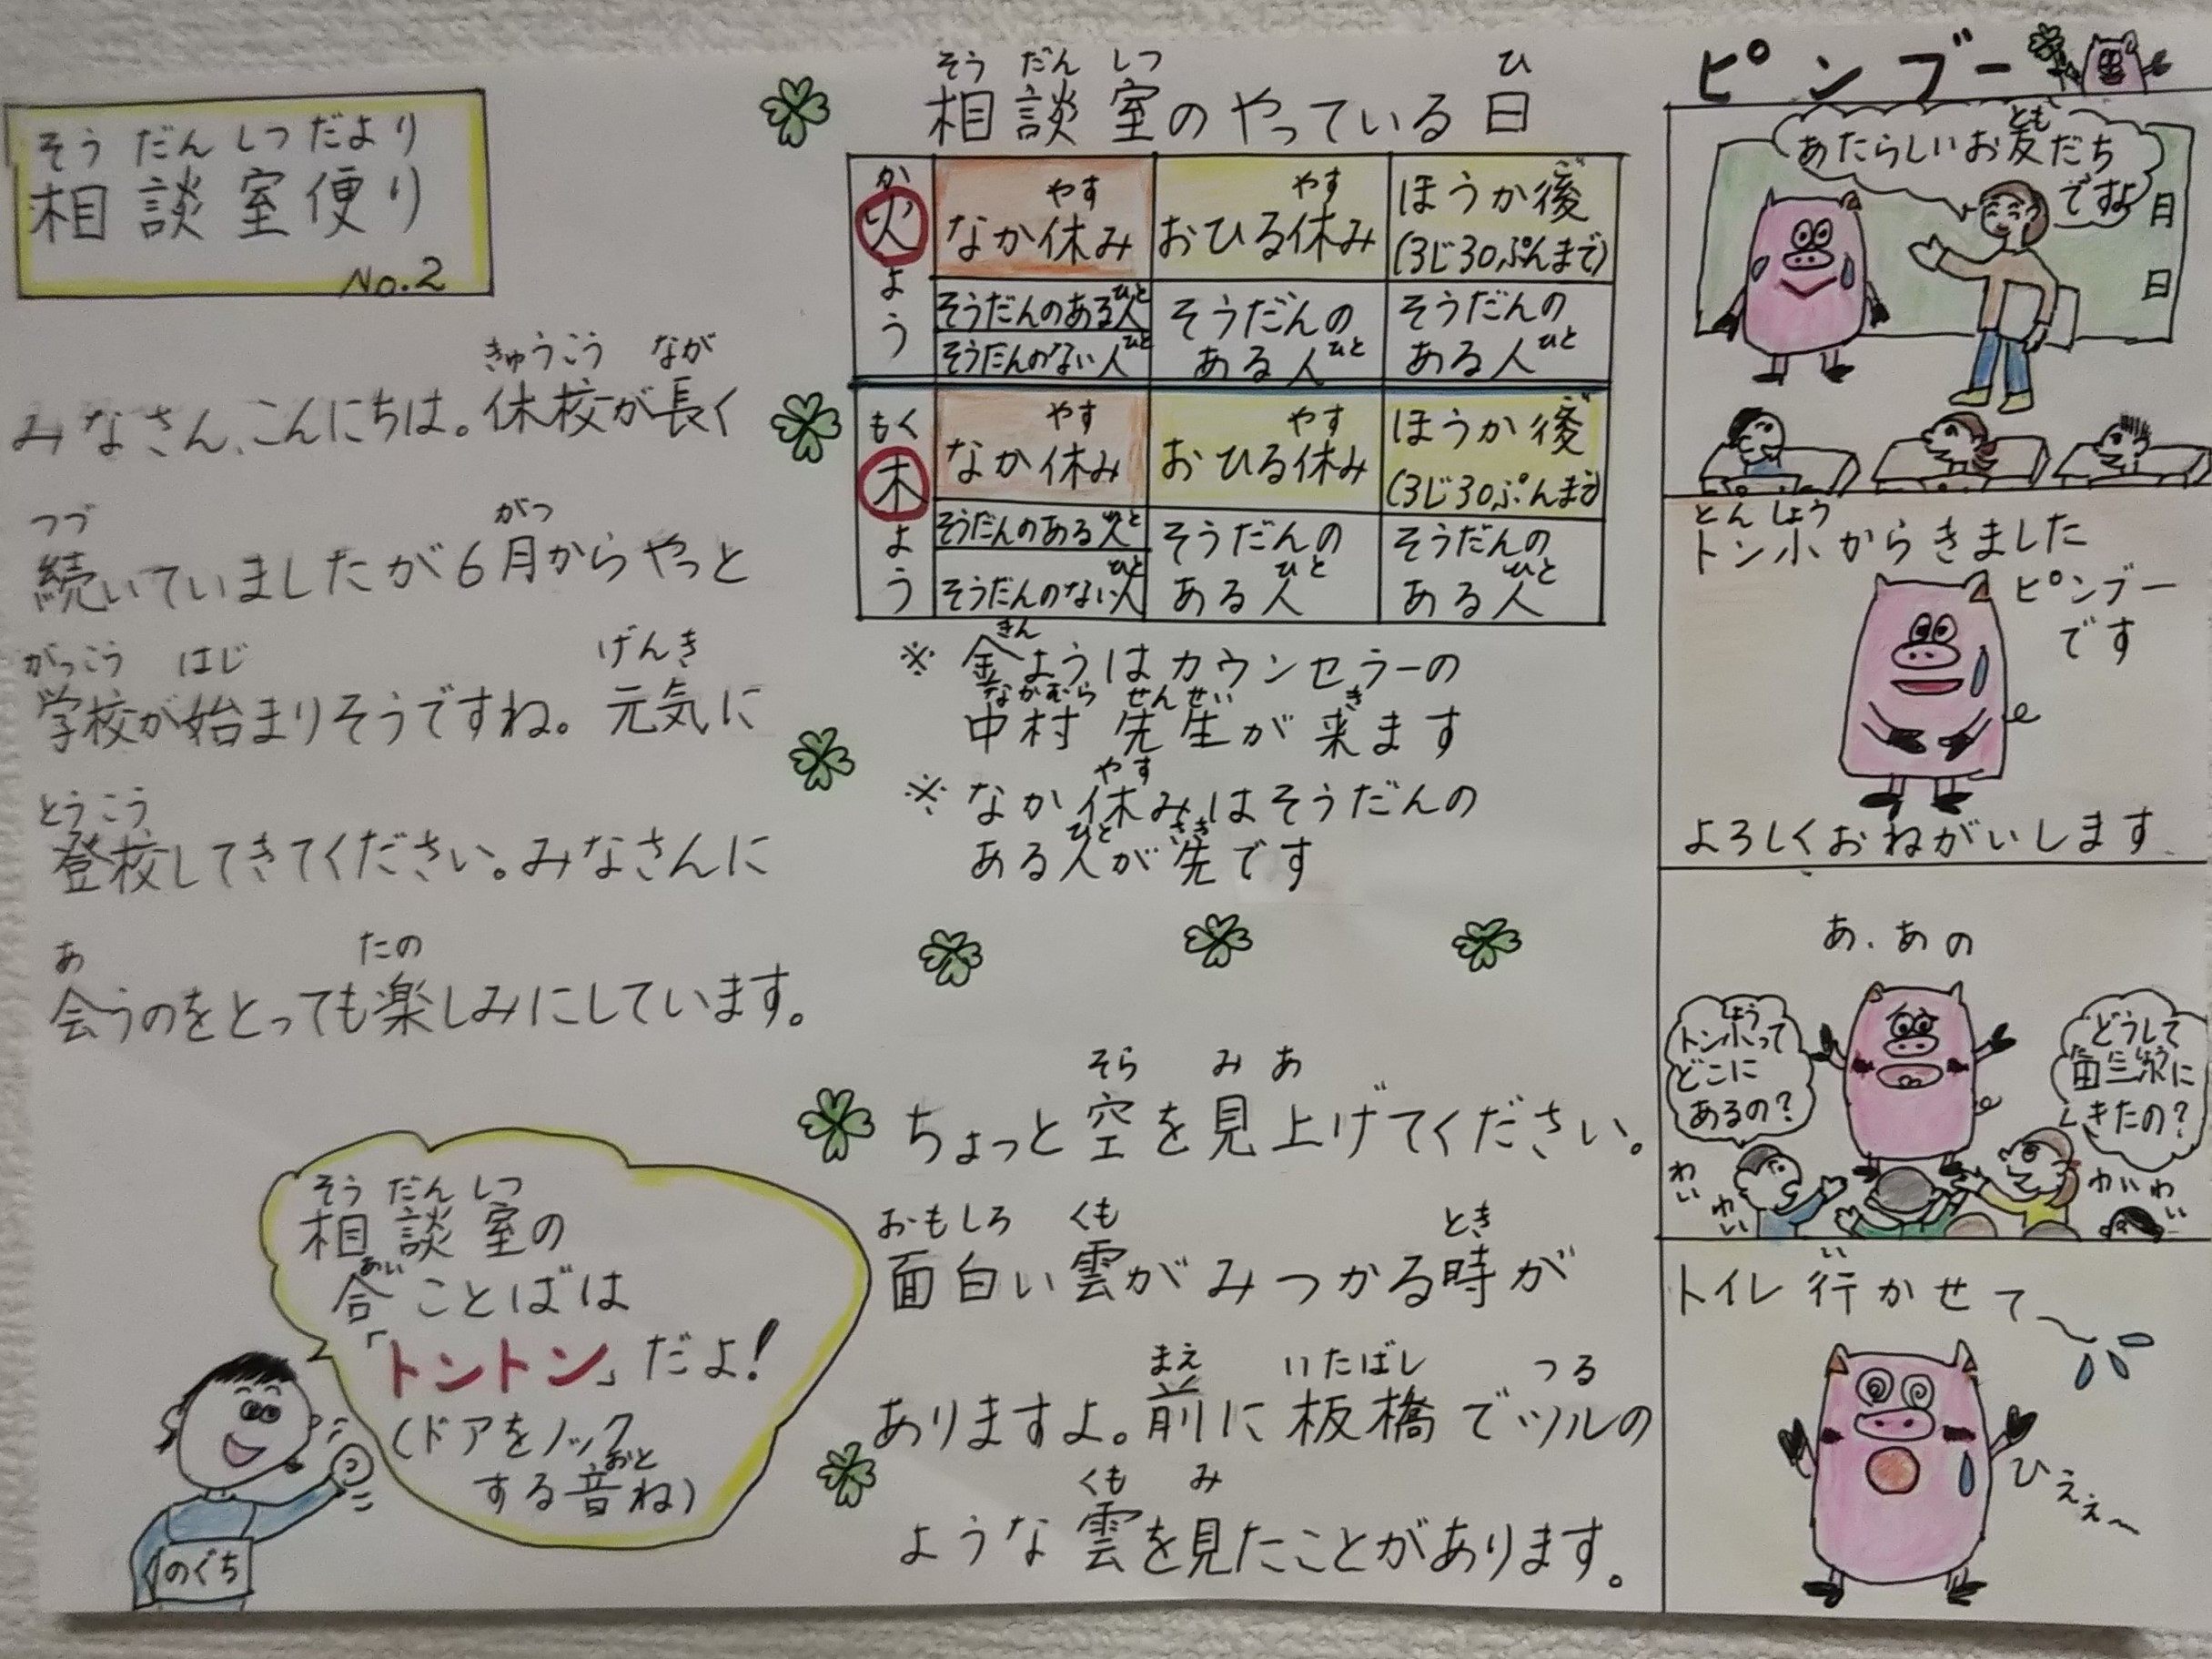 そうだんしつだより
相談室便り
No.2
きゅうこう なが
みなさん、こんにちは。休校が長く
つづ がつ
続いていましたが6月からやっと
がっこう はじ げんき
学校が始まりそうですね。元気に
とうこう
登校してきてください。みなさんに
あ たの
会うのをとっても楽しみにしています。
そうだんしつ
相談室の
あい
合ことばは
「トントン」だよ!
(ドアをノック
おと
する音ね)
のぐち
そうだんしつ ひ
相談室のやっている日
か
火よう
やす
なか休み
やす
おひる休み
ほうか後
(3じ30ぷんまで)
ひと
そうだんのある人
ひと
そうだんのない人
そうだんの
ある人 ひと
そうだんの
ある人 ひと
もく
木よう
やす
なか休み
やす
おひる休み
ほうか後
(3じ30ぷんまで)
ひと
そうだんのある人
ひと
そうだんのない人
そうだんの
ひと
ある人
そうだんの
ひと
ある人
きん
※金ようはカウンセラーの
なかむら せんせい き
中村先生が来ます
やす
※なか休みはそうだんの
ひと さき
ある人が先です
そら み あ
ちょっと空を見上げてください。
おもしろ くも とき
面白い雲がみつかる時が
まえ いたばし つる
ありますよ。前に板橋でツルの
くも み
ような雲を見たことがあります。
ピンブー
とも
あたらしいお友だち
ですよ
月
日
とんしょう
トン小からきました
ピンブー
です
よろしくおねがいします
あ、あの
しょう
トン小って
どこに
あるの?
どうして
に
きたの?
わいわい
わいわい
い
トイレ行かせて〜
ひぇぇ〜